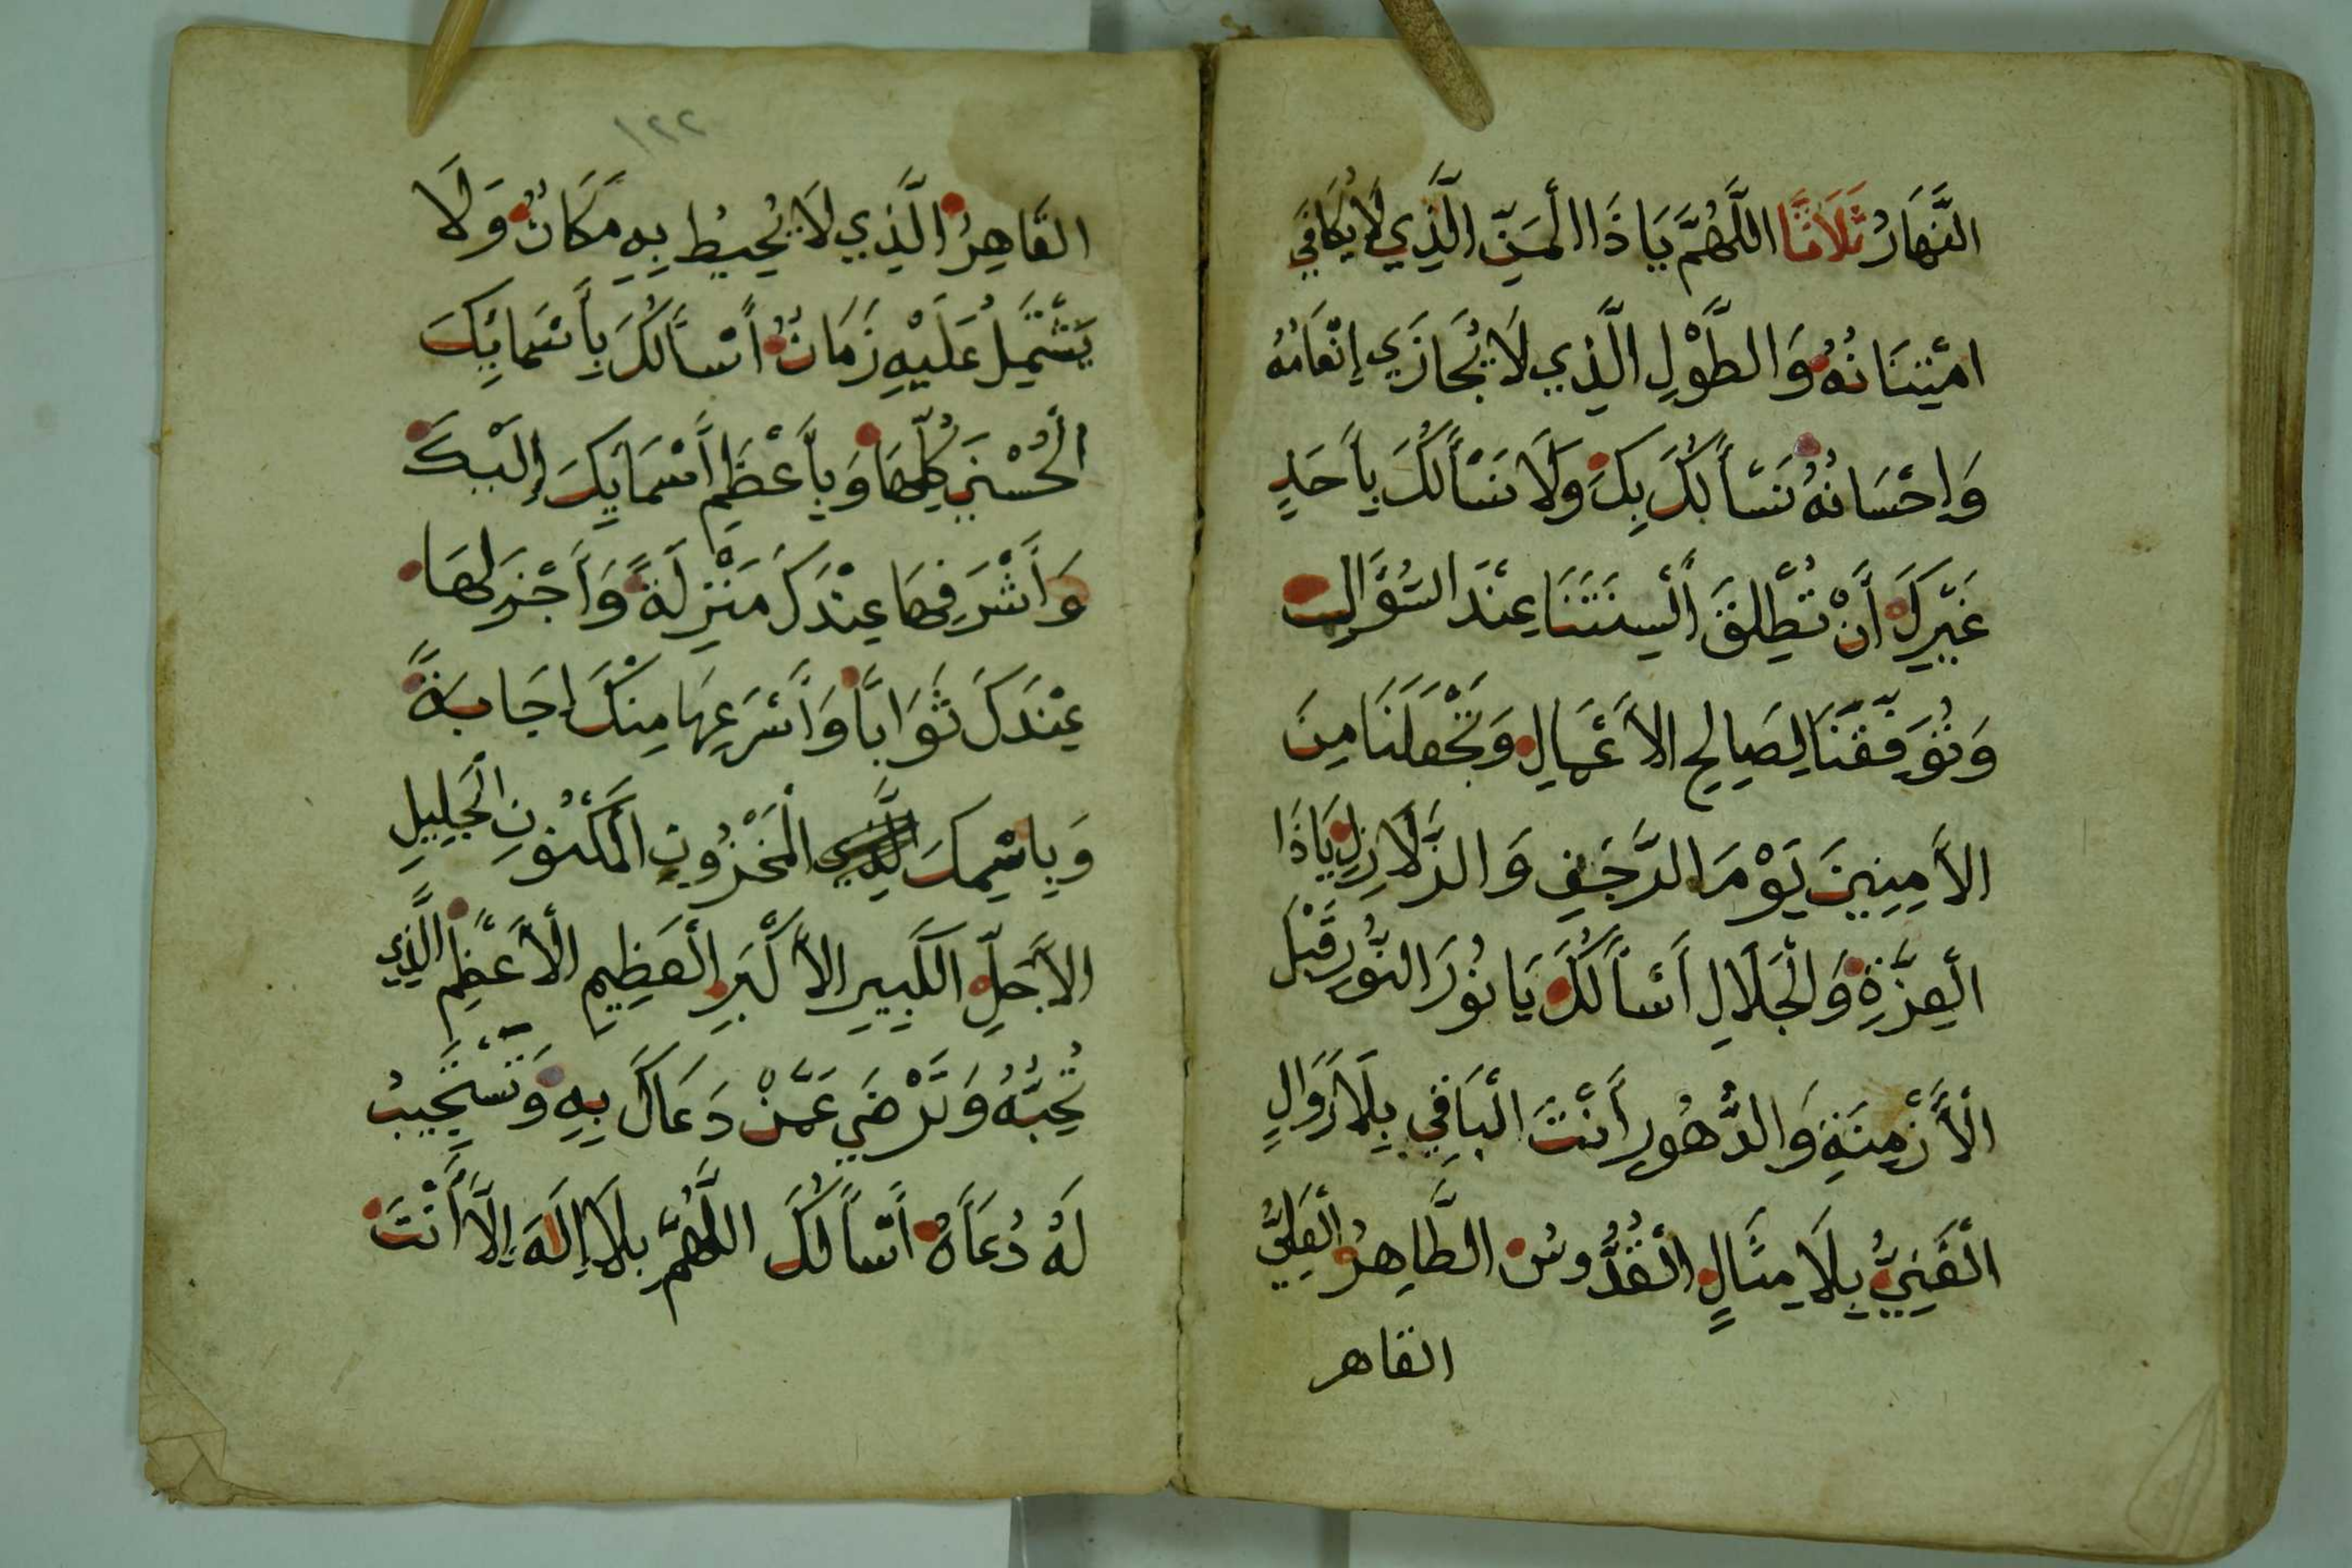 النَّهَارُ ثَلَاثًا اللَّهُمَّ يَا ذَا الْمَنِّ الَّذِي لَا يُكَافَي
امْتِنَانُهُ وَالطَّوْلِ الَّذِي لَا يُجَازَي إِنْعَامُهُ
وَإِحْسَانُهُ نَسْأَلُكَ بِكَ وَلَا نَسْأَلُكَ بِأَحَدٍ
غَيْرِكَ أَنْ تُطْلِقَ أَلْسِنَتَنَا عِنْدَ السُّؤَالِ
وَتُوَفِّقَنَا لِصَالِحِ الْأَعْمَالِ وَتَجْعَلَنَا مِنَ
الْآمِنِينَ يَوْمَ الرَّجَفِ وَالزَّلَازِلِ يَا ذَا
الْعِزَّةِ وَالْجَلَالِ أَسْأَلُكَ يَا نُورَ النُّورِ قَبْلَ
الْأَزْمِنَةِ وَالدُّهُورِ أَنْتَ الْبَاقِي بِلَا زَوَالٍ
الْغَنِيُّ بِلَا مِثَالٍ الْقُدُّوسُ الطَّاهِرُ الْعَلِيُّ
القاهر
١٢٢
القَاهِرُ الَّذِي لَا يُحِيطُ بِهِ مَكَانٌ وَلَا
يَشْتَمِلُ عَلَيْهِ زَمَانٌ أَسْأَلُكَ بِأَسْمَائِكَ
الْحُسْنَي كُلِّهَا وَبِأَعْظَمِ أَسْمَايِكَ إِلَيْكَ
وَأَشْرَفِهَا عِنْدَكَ مَنْزِلَةً وَأَجْزَلِهَا
عِنْدَكَ ثَوَابًا وَأَسْرَعِهَا مِنْكَ إِجَابَةً
وَبِاسْمِكَ الْمَخْزُونِ الْمَكْنُونِ الْجَلِيلِ
الْأَجَلِّ الْكَبِيرِ الْأَكْبَرِ الْعَظِيمِ الْأَعْظَمِ الَّذِي
تُحِبُّهُ وَتَرْضَي عَمَّنْ دَعَاكَ بِهِ وَتَسْتَجِيبُ
لَهُ دُعَاءَهُ أَسْأَلُكَ اللَّهُمَّ بِلَا إِلَهَ إِلَّا أَنْتَ